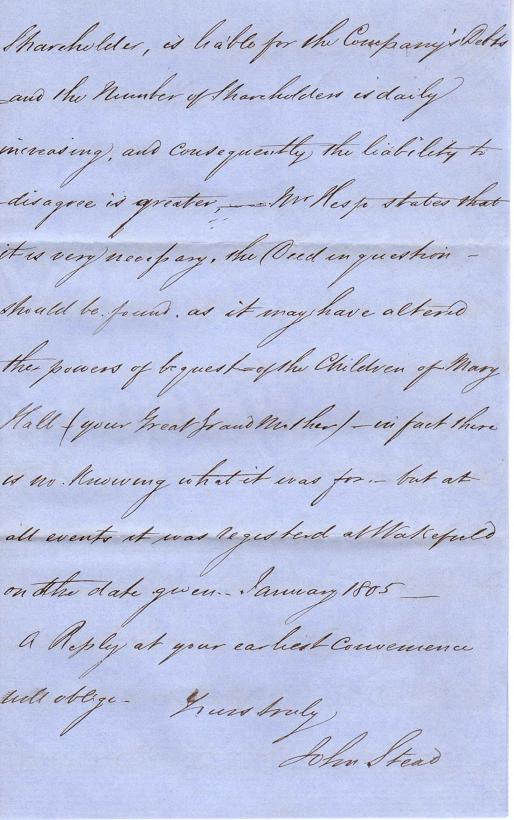 Shareholder, is liable for the Company's Debts
and the Number of Shareholders is daily
increasing, and consequently the liability to
disagree is greater, — Mr Hesp states that
it is very necessary, the Deed in question –
should be found. as it may have altered
the powers of bequest – of the Children of Mary
Hall (your Great Grand Mother) – in fact there
is no. Knowing what it was for. – but at
all events it was registerd at Wakefield
on the date given – January 1805 —
A Reply at your earliest Convenience
will oblige –
Yours truly
John Stead